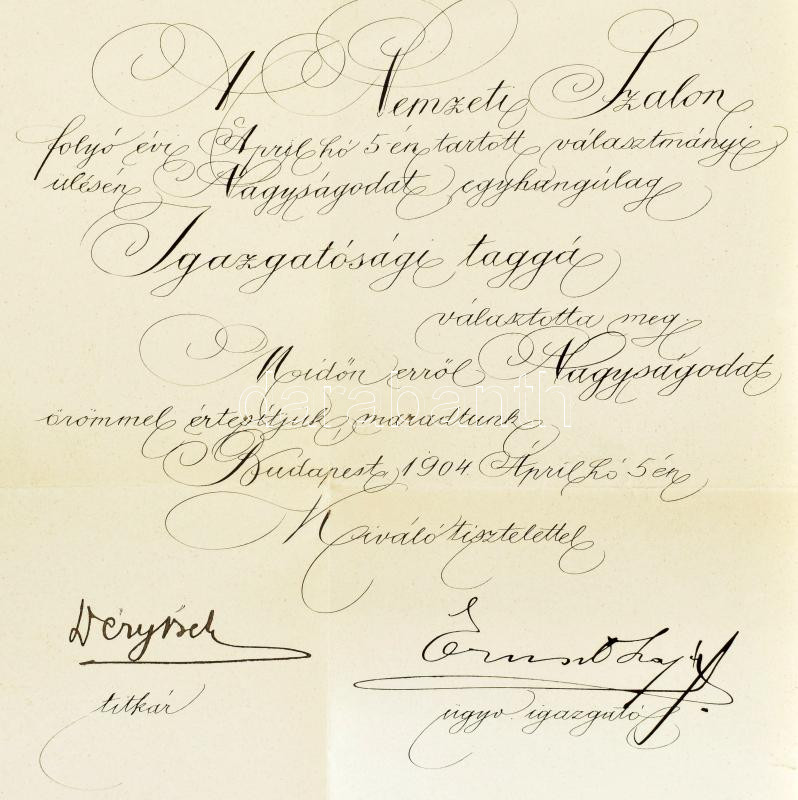 A Nemzeti Szalon
folyó évi Április hó 5-én tartott választmányi
ülésén Nagyságodat egyhangúlag
Igazgatósági taggá
választotta meg.
Midőn erről Nagyságodat
örömmel értesítjük, maradtunk
Budapest, 1904. Április hó 5-én
Kiváló tisztelettel
Déry Béla
Ernst Lajos
titkár
ügyv. igazgató
darabanth